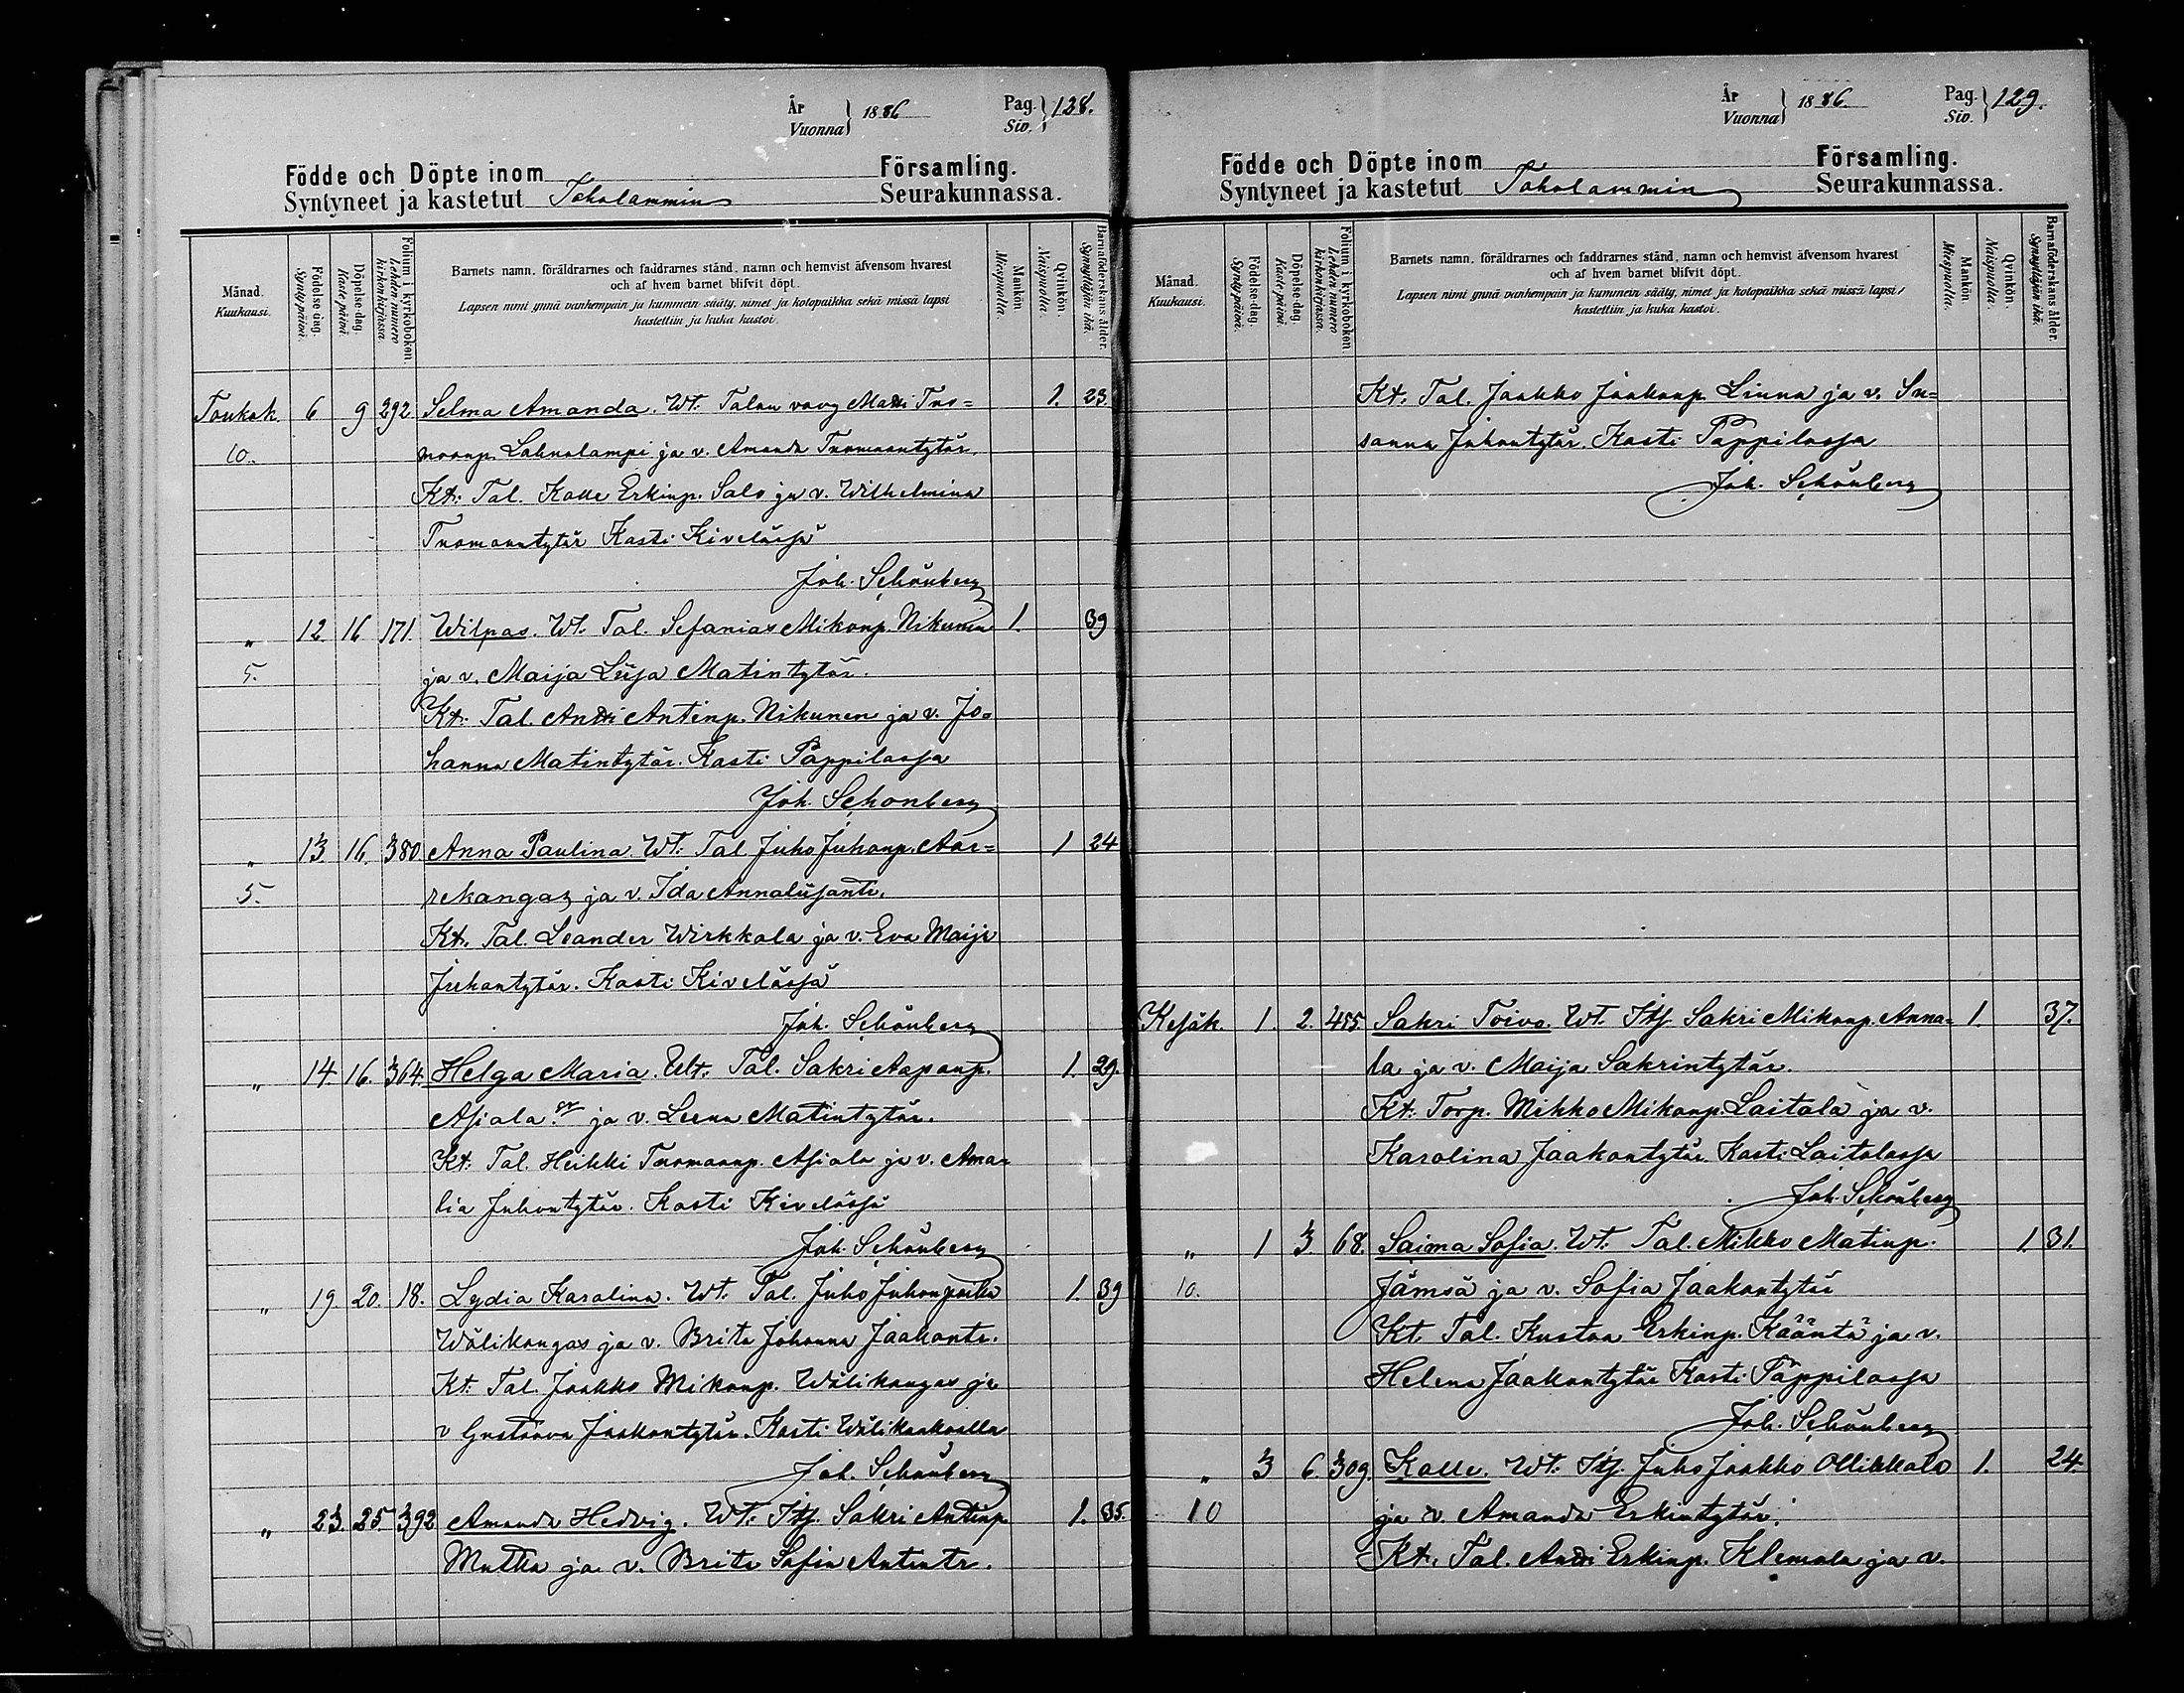 År
Vuonna } 1886
Pag.
Siv. } 128.
Födde och Döpte inom Församling.
Syntyneet ja kastetut Toholammin Seurakunnassa.
Månad.
Kuukausi.
Födelse-dag.
Synty päivä.
Döpelse-dag.
Kaste päivä.
Folium i kyrkoboken.
Lehden numero kirkonkirjassa.
Barnets namn, föräldrarnes och faddrarnes stånd, namn och hemvist äfvensom hvarest
och af hvem barnet blifvit döpt.
Lapsen nimi ynnä vanhempain ja kummein sääty, nimet ja kotopaikka sekä missä lapsi
kastettiin ja kuka kastoi.
Mankön.
Miespuolta.
Qvinkön.
Naispuolta.
Barnaföderskans ålder.
Synnyttäjän ikä.
Toukok. 6 9 292. Selma Amanda. Wt. Talon vävy Matti Tuo= 1. 23.
10. moanp. Lahnalampi ja v. Amanda Tuomaantytär.
Kt: Tal. Kalle Erkinp. Salo ja v. Wilhelmina
Tuomaantytär Kasti Kivelässä
Joh. Schönberg
„ 12 16 171. Wilpas. Wt. Tal. Sefanias Mikonp. Nikunen 1. 39
5. ja v. Maija Liisa Matintytär.
Kt: Tal. Antti Antinp. Nikunen ja v. Jo=
hanna Matintytär. Kasti Pappilassa
Joh. Schonberg
„ 13. 16. 380. Anna Paulina. Wt: Tal Juho Juhonp. Aar= 1 24
5. rekangas ja v. Ida Annaliisantr.
Kt. Tal. Leander Wirkkala ja v. Eva Maija
Juhontytär. Kasti Kivelässä
Joh. Schönberg
„ 14. 16. 364. Helga Maria. Wt: Tal. Sakri Aaponp. 1. 29.
Asiala ja v. Leena Matintytär.
Kt: Tal. Heikki Tuomaanp. Asiala ja v. Ama=
lia Juhontytär. Kasti Kivelässä
Joh. Schönberg
„ 19. 20. 18. Lydia Karolina. Wt. Tal. Juho Juhonpoika 1. 39
Wälikangas ja v. Brita Johanna Jaakontr.
Kt: Tal. Jaakko Mikonp. Wälikangas ja
v Gustaava Jaakontytär. Kasti Wälikankaalla
Joh. Schönberg
„ 23. 25. 392 Amanda Hedvig. Wt: Itg. Sakri Antinp. 1. 35.
Mutka ja v. Brita Sofia Antintr.
År
Vuonna } 1886.
Pag.
Siv. } 129.
Födde och Döpte inom Församling.
Syntyneet ja kastetut Toholammin Seurakunnassa.
Månad.
Kuukausi.
Födelse-dag.
Synty päivä.
Döpelse-dag.
Kaste päivä.
Folium i kyrkoboken.
Lehden numero kirkonkirjassa.
Barnets namn, föräldrarnes och faddrarnes stånd, namn och hemvist äfvensom hvarest
och af hvem barnet blifvit döpt.
Lapsen nimi ynnä vanhempain ja kummein sääty, nimet ja kotopaikka sekä missä lapsi
kastettiin ja kuka kastoi.
Mankön.
Miespuolta.
Qvinkön.
Naispuolta.
Barnaföderskans ålder.
Synnyttäjän ikä.
Kt. Tal. Jaakko Jaakonp. Linna ja v. Su=
sanna Juhontytär. Kasti Pappilassa
Joh. Schönberg
Kesäk. 1. 2. 455. Sakri Toivo. Wt. Itg. Sakri Mikonp. Anna= 1. 37.
la ja v. Maija Sakrintytär.
Kt: Torp. Mikko Mikonp. Laitala ja v.
Karolina Jaakontytär. Kasti Laitalassa
Joh. Schönberg
„ 1 3 68. Saima Sofia. Wt: Tal. Mikko Matinp. 1. 31.
10. Jämsä ja v. Sofia Jaakontytär
Kt. Tal. Kustaa Erkinp. Kääntä ja v.
Helena Jaakontytär Kasti Pappilassa
Joh. Schönberg
„ 3 6. 309. Kalle. Wt: Itg. Juho Jaakko Ollikkala 1. 24.
10 ja v. Amanda Erkintytär.
Kt. Tal. Antti Erkinp. Klemola ja v.